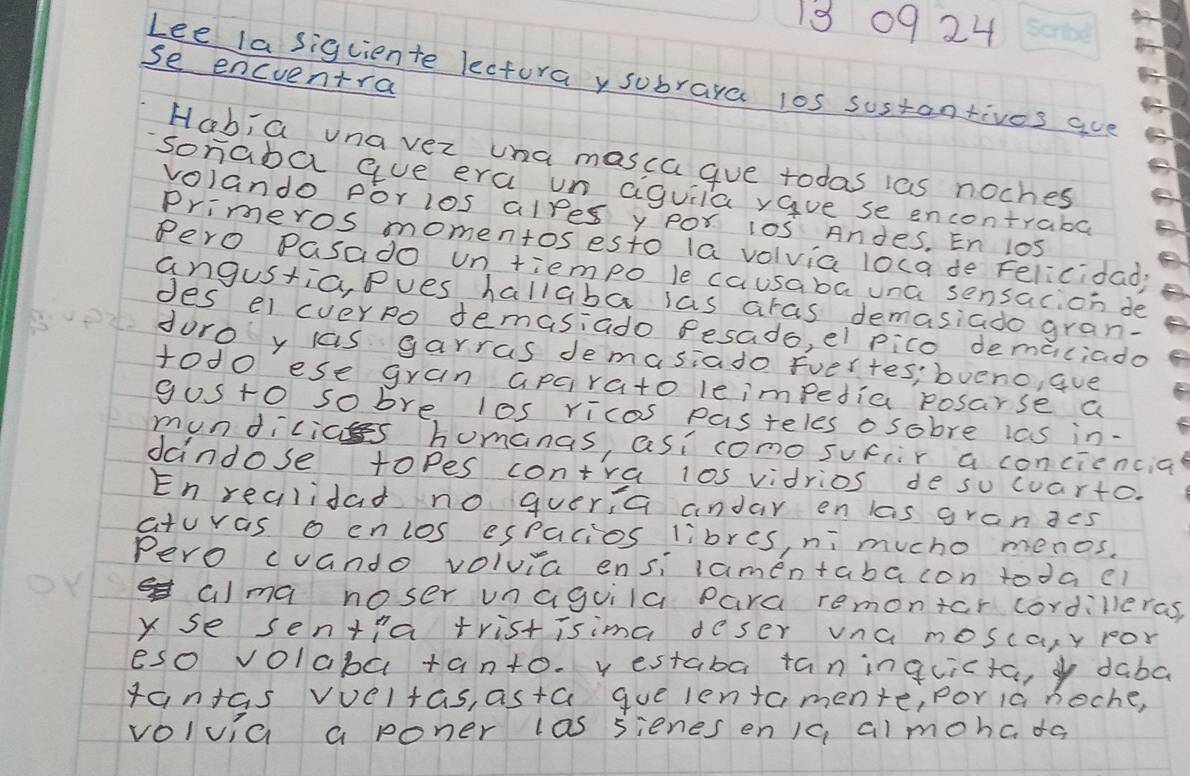 13 09 24
Scribe
Lee la siguiente lectura y subraya los sustantivos que
se encuentra
Habia una vez una masca que todas las noches
soñaba que era un águila yque se encontraba
volando por los alpes y por los Andes. En los
Primeros momentos esto la volvía loca de Felicidad;
Pero Pasado un tiempo le causaba una sensación de
angustia, Pues hallaba las aras demasiado gran-
des el cuerpo demasiado Pesado, el Pico demáciado
duro y las garras demasiado Fuertes; bueno, que
todo ese gran aparato le impedia posarse a
gusto sobre los ricos pasteles o sobre las in-
mundicias humanas, así como sufrir a conciencia
dándose topes contra los vidrios de su cuarto.
En realidad no quería andar en las grandes
aturas o en los espacios libres, ni mucho menos.
Pero cuando volvía en si lamentaba con toda el
alma no ser un aguila Para remontar cordilleras,
y se sentía tristísima de ser una mosca, y por
eso volaba tanto. y estaba tan inquieta, y daba
tantas vueltas, asta que lentamente, por la noche,
volvía a poner las sienes en la almohada